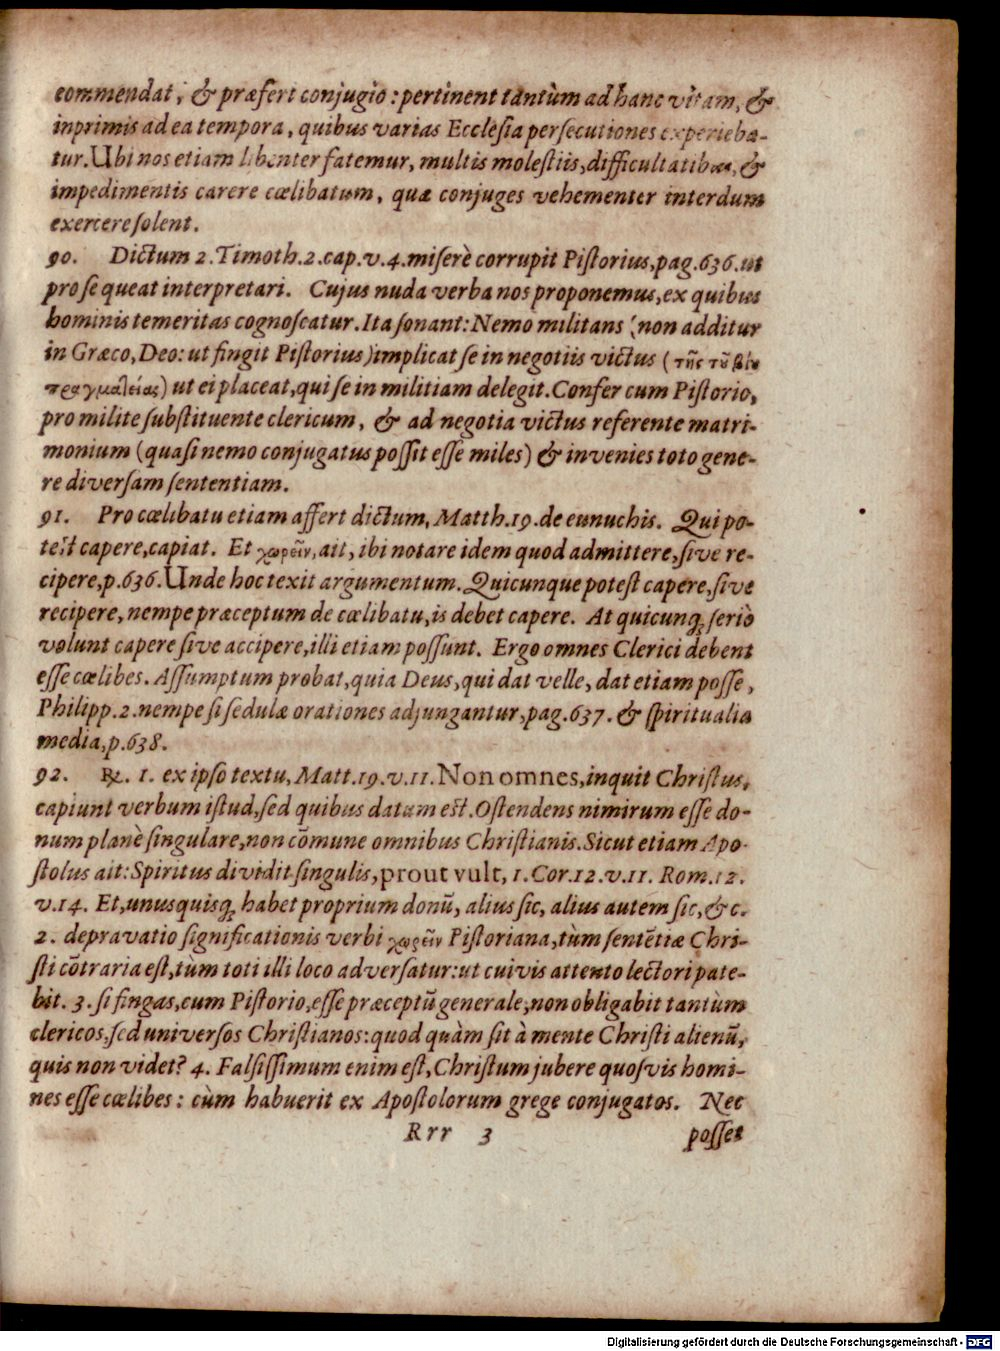 commendat, & præfert conjugio: pertinent tantùm ad hanc vitam, &
inprimis ad ea tempora, quibus varias Ecclesia persecutiones experieba-
tur. Ubi nos etiam libenter fatemur, multis molestiis, difficultatibus, &
impedimentis carere cœlibatum, quæ conjuges vehementer interdum
exercere solent.
90. Dictum 2. Timoth. 2. cap. v. 4. miserè corrupit Pistorius, pag. 636. ut
pro se queat interpretari. Cujus nuda verba nos proponemus, ex quibus
hominis temeritas cognoscatur. Ita sonant: Nemo militans (non additur
in Græco, Deo: ut fingit Pistorius) implicat se in negotiis victus (ταῖς τοῦ βίου
πραγματείαις) ut ei placeat, qui se in militiam delegit. Confer cum Pistorio,
pro milite substituente clericum, & ad negotia victus referente matri-
monium (quasi nemo conjugatus possit esse miles) & invenies toto gene-
re diversam sententiam.
91. Pro cœlibatu etiam affert dictum, Matth. 19. de eunuchis. Qui po-
test capere, capiat. Et χωρεῖν, ait, ibi notare idem quod admittere, sive re-
cipere, p. 636. Unde hoc texit argumentum. Quicunque potest capere, sive
recipere, nempe præceptum de cœlibatu, is debet capere. At quicunq; seriò
volunt capere sive accipere, illi etiam possunt. Ergo omnes Clerici debent
esse cœlibes. Assumptum probat, quia Deus, qui dat velle, dat etiam posse,
Philipp. 2. nempe si sedulæ orationes adjungantur, pag. 637. & spiritualia
media, p. 638.
92. ℞. 1. ex ipso textu, Matt. 19. v. 11. Non omnes, inquit Christus,
capiunt verbum istud, sed quibus datum est. Ostendens nimirum esse do-
num planè singulare, non cõmune omnibus Christianis. Sicut etiam Apo-
stolus ait: Spiritus dividit singulis, prout vult, 1. Cor. 12. v. 11. Rom. 12.
v. 14. Et, unusquisq; habet proprium donũ, alius sic, alius autem sic, &c.
2. depravatio significationis verbi χωρεῖν Pistoriana, tùm sentẽtiæ Chri-
sti cõtraria est, tùm toti illi loco adversatur: ut cuivis attento lectori pate-
bit. 3. si fingas, cum Pistorio, esse præceptũ generale, non obligabit tantùm
clericos, sed universos Christianos: quod quàm sit à mente Christi alienũ,
quis non videt? 4. Falsissimum enim est, Christum jubere quosvis homi-
nes esse cœlibes: cùm habuerit ex Apostolorum grege conjugatos. Nec
Rrr 3 posset
Digitalisierung gefördert durch die Deutsche Forschungsgemeinschaft - DFG